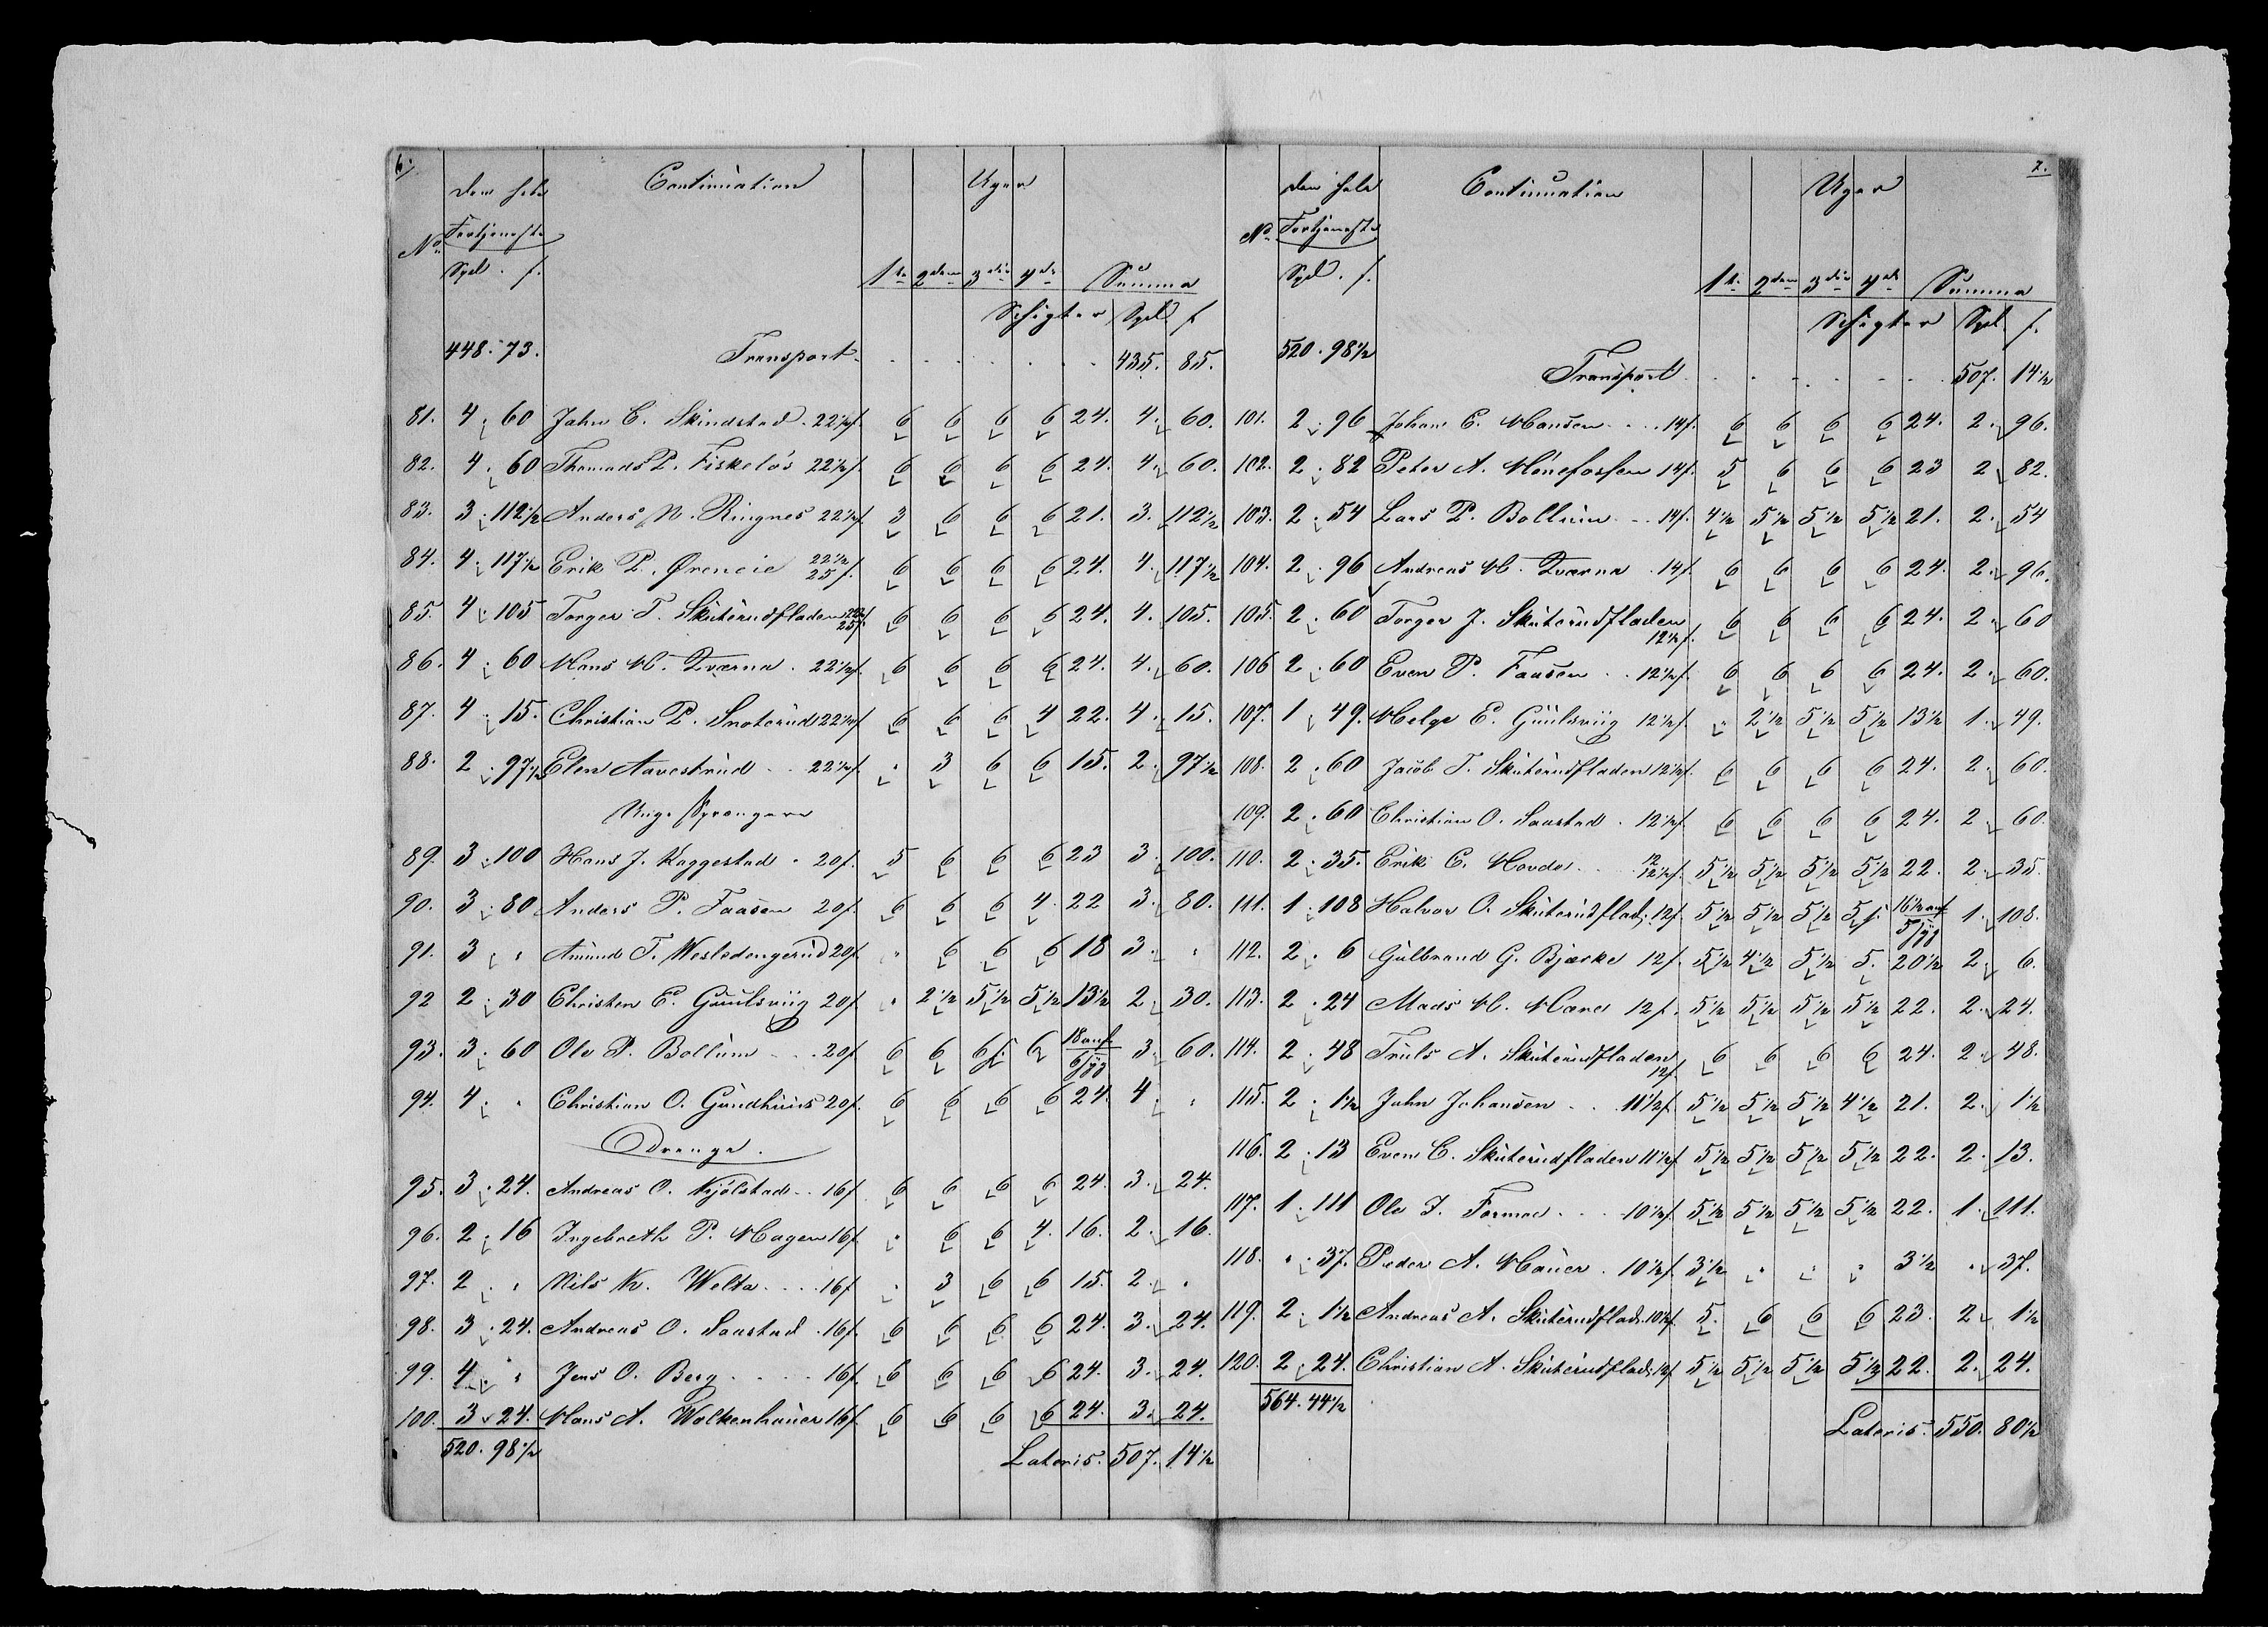 6.
den hele Continuation Uger
No. Fortjeneste
Spd. s. 1te 2den 3die 4de Summa
Schigter Spd s
448. 73. Transport 435. 85.
81. 4. 60 John C. Skindstad. 22½s. 6 6 6 6 24. 4. 60.
82. 4. 60 Thomas P. Fiskelös 22½s. 6 6 6 6 24. 4. 60.
83. 3. 112½ Anders N. Ringnes 22½s. 3 6 6 6 21. 3. 112½
84. 4. 117½ Erik P. Øreneie 22½ 25s. 6 6 6 6 24. 4. 117½
85. 4. 105 Torger T. Skuterudfladen 22½s. 25s. 6 6 6 6 24. 4. 105.
86. 4. 60 Hans H. Qværna. 22½s. 6 6 6 6 24. 4. 60.
87. 4. 15. Christian P. Snoterud 22½s. 6 6 6 4 22. 4. 15.
88. 2. 97½ Elen Aavestrud 22½s. . 3 6 6 15. 2. 97½
Unge Sprengere
89. 3. 100 Hans J. Kaggestad. 20s. 5 6 6 6 23 3. 100.
90. 3. 80 Anders P. Faasen 20s. 6 6 6 4. 22 3. 80.
91. 3. . Amund T. Wesledengerud 20s. . 6 6 6 18 3. .
92 2. 30 Christen E. Guulsviig 20s. . 2½ 5½ 5½ 13½ 2 30.
93. 3. 60 Ole P. Bollum 20s. 6 6 6 6 18 3. 60.
94. 4. . Christian O. Gundhuus 20s. 6 6 6 6 24. 4. .
Drenge.
95. 3. 24. Andreas O. Kjölstad 16s. 6 6 6 6 24. 3. 24.
96. 2. 16 Ingebreth P. Hagen 16s. . 6 6 4. 16. 2. 16.
97. 2. . Nils K. Welta 16s. . 3 6 6 15. 2. .
98. 3. 24. Andreas O. Saastad. 16s. 6 6 6 6 24. 3. 24.
99. 4. . Jens O. Berg 16s. 6 6 6 6 24. 3. 24.
100. 3. 24. Hans A. Wolkenhauer 16s. 6 6 6 6 24. 3. 24.
520. 98½ Lateris. 507. 14½
7.
den hele Continuation Uger
No. Fortjeneste
Spd. s. 1te 2den 3die 4de Summa
Schigter Spd. s.
520. 98½ Transport 507. 14½
101. 2. 96 Johan E. Hansen 14s. 6 6 6 6 24. 2. 96.
102. 2. 82 Peter A. Hönefossen 14s. 5 6 6 6 23 2 82.
103. 2. 54 Lars P. Bollum 14s. 4½ 5½ 5½ 5½ 21. 2. 54
104. 2. 96 Andreas H. Qværna. 14s. 6 6 6 6 24. 2. 96.
105. 2. 60 Torger J. Skuterudfladen 12½s. 6 6 6 6 24. 2. 60
106 2. 60 Even P. Faasen 12½s. 6 6 6 6 24. 2. 60.
107. 1 49. Helge E. Guulsviig 12½s. . 2½ 5½ 5½ 13½ 1. 49.
108. 2. 60 Jacob T. Skuterudfladen 12½s. 6 6 6 6 24. 2. 60.
109. 2. 60 Christian O. Saastad. 12½s. 6 6 6 6 24. 2 60.
110. 2. 35. Erik C. Hovde 12 12½s. 5½ 5½ 5½ 5½ 22. 2. 35.
111. 1. 108 Halvor O. Skuterudflad. 12s. 5½ 5½ 5½ 5 16½ 1. 108.
112. 2. 6 Gulbrand G. Bjærke 12s. 5½ 4½ 5½ 5. 20½ 2. 6.
113. 2. 24 Mads H. Hære 12s. 5½ 5½ 5½ 5½ 22. 2. 24.
114. 2. 48 Truls A. Skuterudfladen 12s. 6 6 6 6 24. 2. 48.
115. 2. 1½ John Johansen 11½s. 5½ 5½ 5½ 4½ 21. 2. 1½
116. 2. 13 Even C. Skuterudfladen 11½s. 5½ 5½ 5½ 5½ 22. 2. 13.
117. 1. 111 Ole J. Formoe 10½s. 5½ 5½ 5½ 5½ 22. 1. 111.
118. . 37. Peder A. Hauer. 10½s. 3½ . . . 3½ . 37.
119. 2. 1½ Andreas A. Skuterudflad. 10½s. 5. 6 6 6 23. 2. 1½
120. 2. 24. Christian A. Skuterudflad. 12s. 5½ 5½ 5½ 5½ 22. 2. 24.
564. 44½ Lateris. 550. 80½